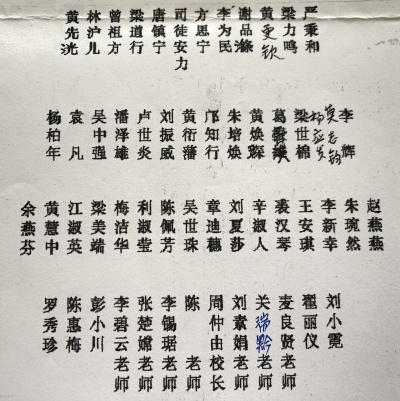 严秉和
梁力鸣
黄更钦
谢品滌
李为民
方思宁
司徒安力
唐镇宁
梁道行
曾祖方
林沪儿
黄先洸
李辉
梁世棉
黄焕琛
朱培焕
邝知行
黄衍藩
刘振威
卢世炎
潘泽雄
吴中强
袁凡
杨柏年
赵燕燕
朱琬然
李新幸
王安琪
裘汉琴
辛淑人
刘夏莎
章迪穗
吴世珠
陈佩芳
利淑莹
梅洁华
梁美端
江淑英
黄慧中
余燕芬
刘小霓
翟丽仪
麦良贤老师
关瑞黔老师
刘素娟老师
周仲由校长
陈 老师
李锡琚老师
张楚嫦老师
李碧云老师
彭小川
陈惠梅
罗秀珍